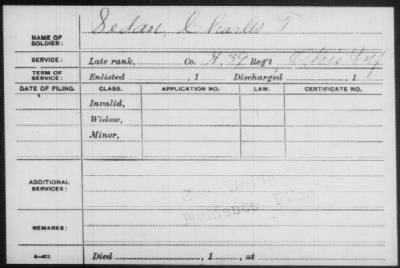 NAME OF SOLDIER: Sedan, Charles T
SERVICE: Late rank, Co. H, 39 Reg't Ohio Inf
TERM OF SERVICE: Enlisted , 1 Discharged , 1
DATE OF FILING. CLASS. APPLICATION NO. LAW. CERTIFICATE NO.
Invalid,
Widow,
Minor,
ADDITIONAL SERVICES:
REMARKS:
Died , 1 , at